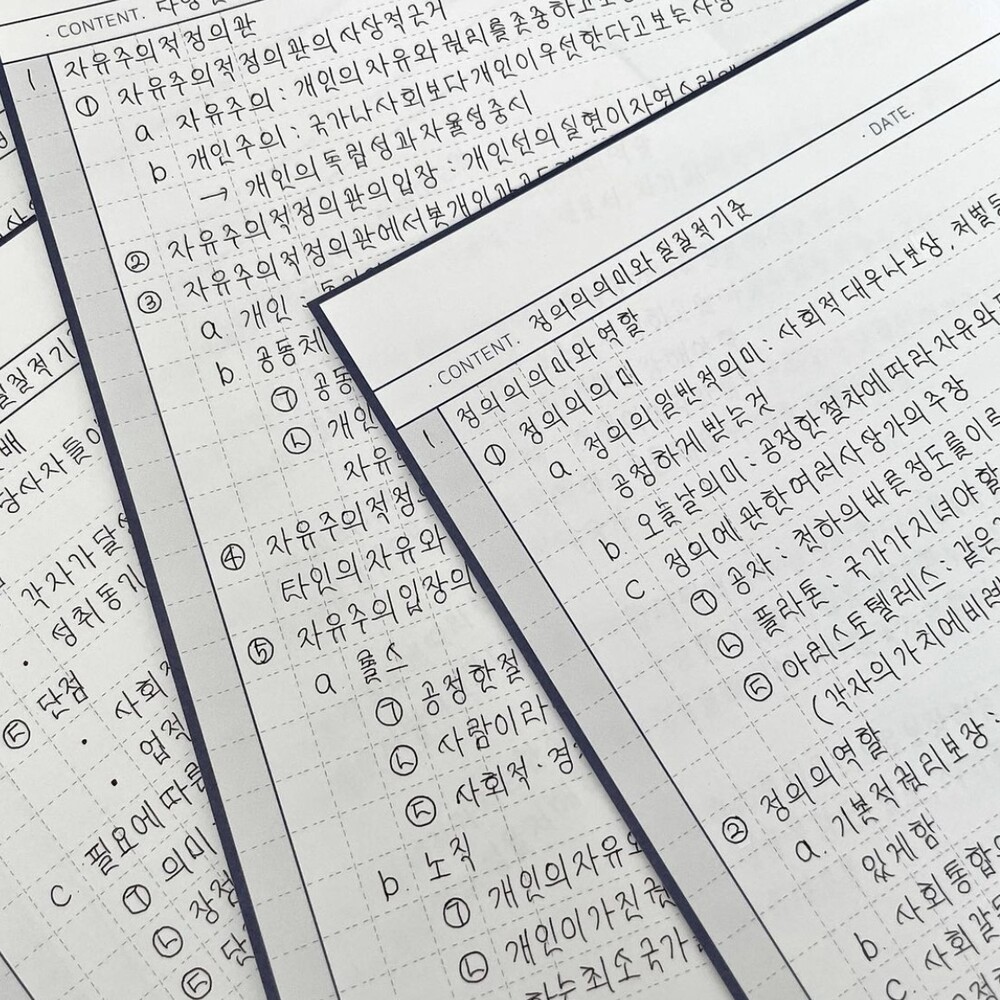 CONTENT.
자유주의적정의관
1
① 자유주의적정의관의 사상적근거
a 자유주의 : 개인의 자유와 권리를 존중하고
b 개인주의 : 국가나 사회보다 개인이 우선한다고 보는 사상
→ 개인의 독립성과 자율성 중시
② 자유주의적정의관의 입장 : 개인선의 실현이 자연스럽게
③ 자유주의적정의관에서 본 개인과
a 개인 :
b. 공동체
㉠ 공동
㉡ 개인
자유
④ 자유주의적정의
타인의 자유와
⑤ 자유주의 입장의
a 롤스
㉠ 공정한 절
㉡ 사람이라
㉢ 사회적·경
b. 노직
㉠ 개인의 자유와
㉡ 개인이 가진
하는 최소국가
DATE.
CONTENT. 정의의 의미와 실질적 기준
1 정의의 의미와 역할
① 정의의 의미
a. 정의의 일반적 의미 : 사회적 대우나 보상, 처벌등
공정하게 받는 것
b 오늘날의 의미 : 공정한 절차에 따라 자유와
c 정의에 관한 여러 사상가의 주장
㉠ 공자 : 천하의 바른 정도를 이르
㉡ 플라톤 : 국가가 지녀야 할
㉢ 아리스토텔레스 : 같은
(각자의 가치에 비례
② 정의의 역할
a 기본적 권리보장 :
있게 함
b. 사회통합
c. 사회갈
실질적 기
당사자들이
각자가 달성
성취동기
㉢ 단점
· 사회
· 업적
c 필요에 따른
㉠ 의미
㉡ 장점
㉢ 단